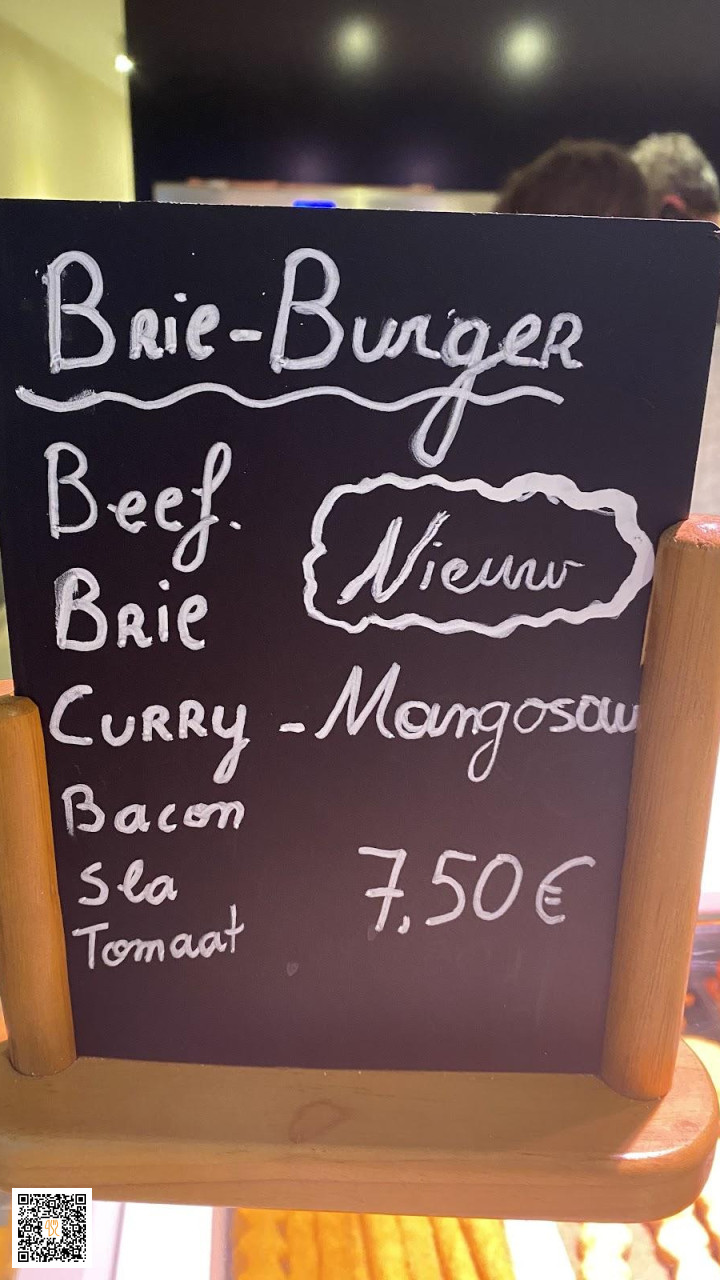 Brie-Burger
Beef.
Nieuw
Brie
Curry - Mangosau
Bacon
Sla
7,50€
Tomaat